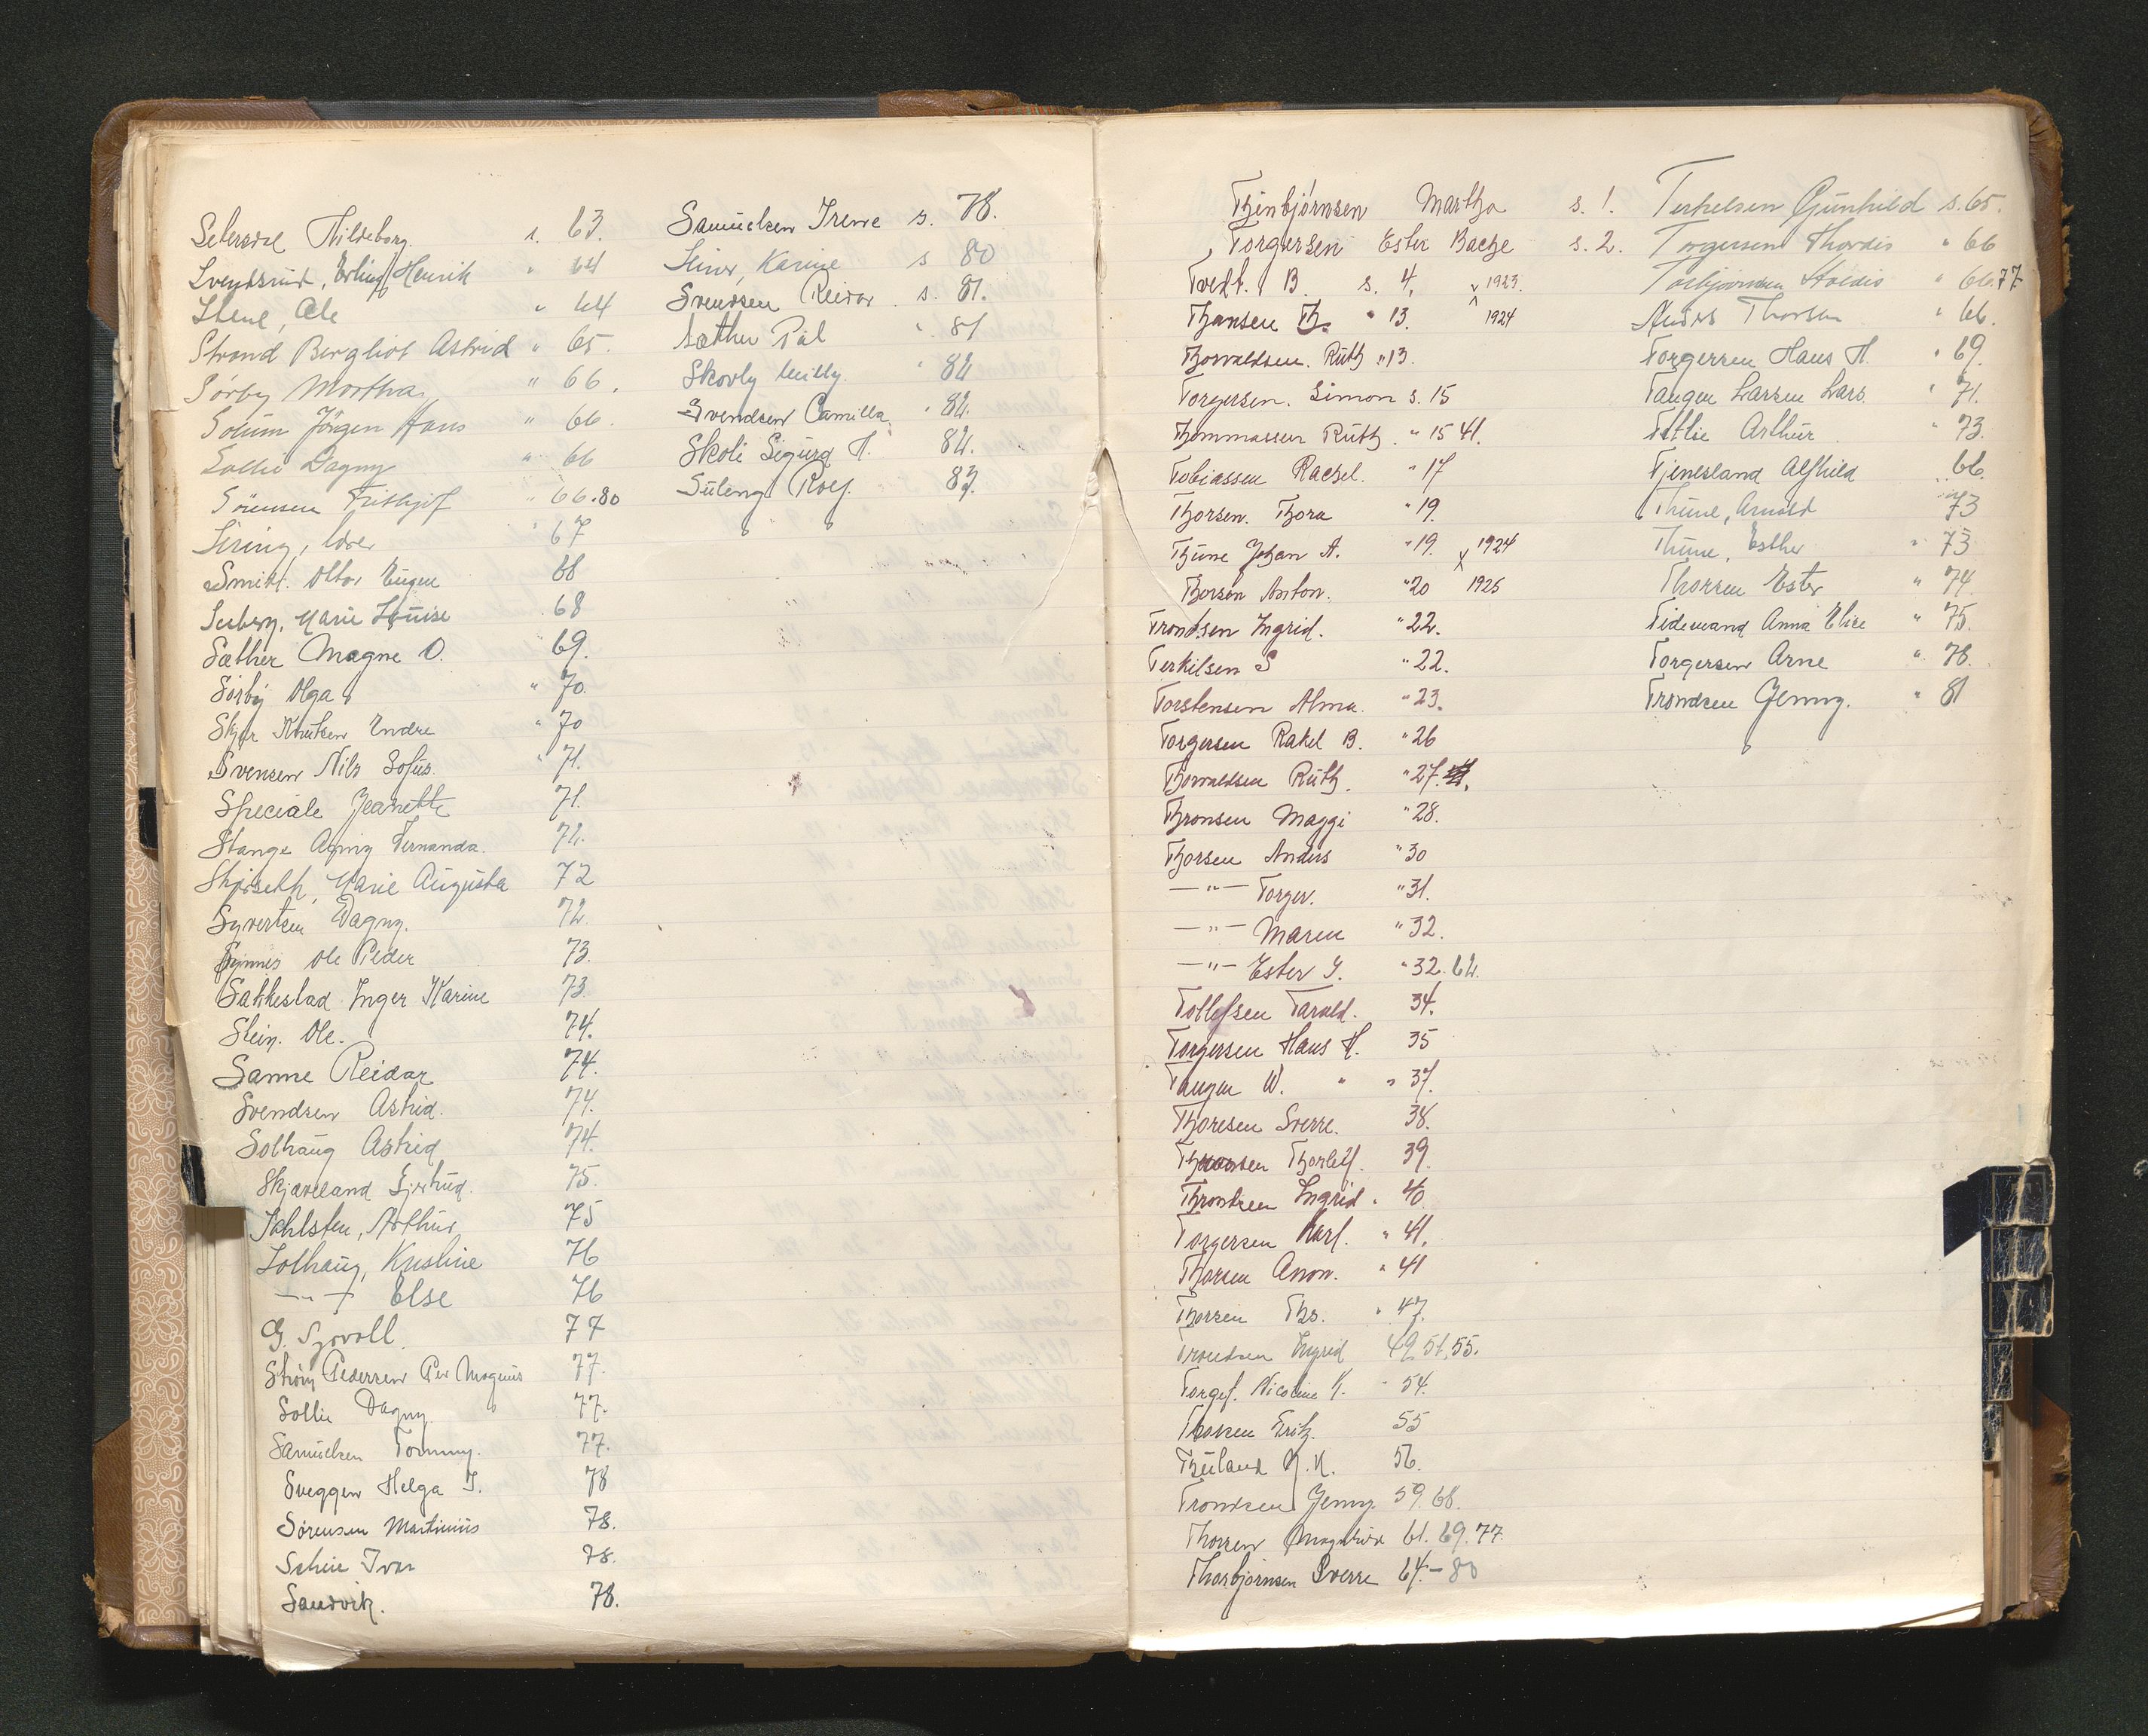 Setersdal Hildeborg. s. 63.
Svendsrud, Erling Henrik " 64
Stene, Ole " 64
Strand Bergliot Astrid " 65.
Sørby Martha " 66.
Solum Jörgen Hans " 66.
Sollie Dagny " 66
Sörensen Fridtjof " 66.80
Siring, " 67
Smith. Ottar Eugen 68
Seeberg, Marie Louise 68
Sæther Magne O. 69.
Sørby Olga " 70.
Skjør Knutsen Endre " 70
Svensen Nils Sofus. " 71.
Speciale Jeanette 71.
Stange Agny Fernanda. 72.
Skjöseth, Marie Augusta 72
Syvertsen Dagny. 72.
Ole Peder 73.
Sakkestad Inger Karine 73.
Stein. Ole. 74.
Sanne Reidar 74.
Svendsen Astrid. 74.
Solhaug Astrid 74.
Skjæveland Gjertrud. 75.
Dahlsten, Arthur 75
Solhaug, Kristine 76
— " — Else 76
G. Syvoll. 77
Strøm Pedersen Per Magnus 77.
Sollie Dagny. 77.
Samuelsen Tommy. 77.
Sveggen Helga I. 78
Sörensen Martinius 78.
Schie Ivar 78.
Sandvik. 78.
Samuelsen Irene s. 78.
Karine s 80
Svendsen Reidar s. 81.
Sæther Pål " 81
Skovly Milly. " 82
Svendsen Camilla. " 82.
Skoli Sigurd H. 82.
Süleng Rolf. 83.
Martha s. 1.
Torgersen Ester Bache s. 2.
Tvedt. B. s. 4. 1923.
Thansen Th. " 13. 1924
Thorvaldsen. Ruth " 13.
Torgersen. Simon s. 15
Thommassen Ruth. " 15 41.
Tobiassen Rachel. " 17
Thorsen. Thora " 19.
Thune Johan A. " 19. 1924
Thorsen Anton. " 20 1925
Trondsen Ingrid. " 22.
Terkilsen S " 22.
Torstensen Alma. " 23.
Torgersen Rakel B. " 26
Thorvaldsen Ruth. " 27.
Thronsen Maggi " 28.
Thorsen Anders " 30
— " — Torger. " 31.
— " — Maren " 32.
— " — Ester Y. " 32. 62.
Tollefsen Tarald. 34.
Torgersen Hans H. 35
Tangen W. " " 37.
Thoresen Sverre. 38.
Thorleif. 39.
Throndsen Ingrid. 40
Torgersen Karl. " 41.
Thorsen Aron. " 41
Thorsen Ths. " 47.
Trondsen Ingrid 49, 51, 55.
Torgef. Nicoline K. " 54.
Thorsen Fritz. 55
Thuland 56.
Trondsen Jenny. 59. 68.
Thorsen 61. 69. 77.
Thorbjörnsen Sverre 64.– 80
Terkelsen Gunhild s. 65.
Torgersen Thordis " 66
Torbjörnsen Haldis " 66.77
Anders Thorsen " 66.
Torgersen Hans H. " 69.
Tangen Larsen Lars. " 71.
Tollie Arthur " 73.
Tjenesland Alfhild 66.
Thune, Arnold 73
Thune, Esther " 73
Thorsen Ester " 74.
Tidemand Anna Elise " 75.
Torgersen Arne " 78.
Trondsen Jenny. " 81